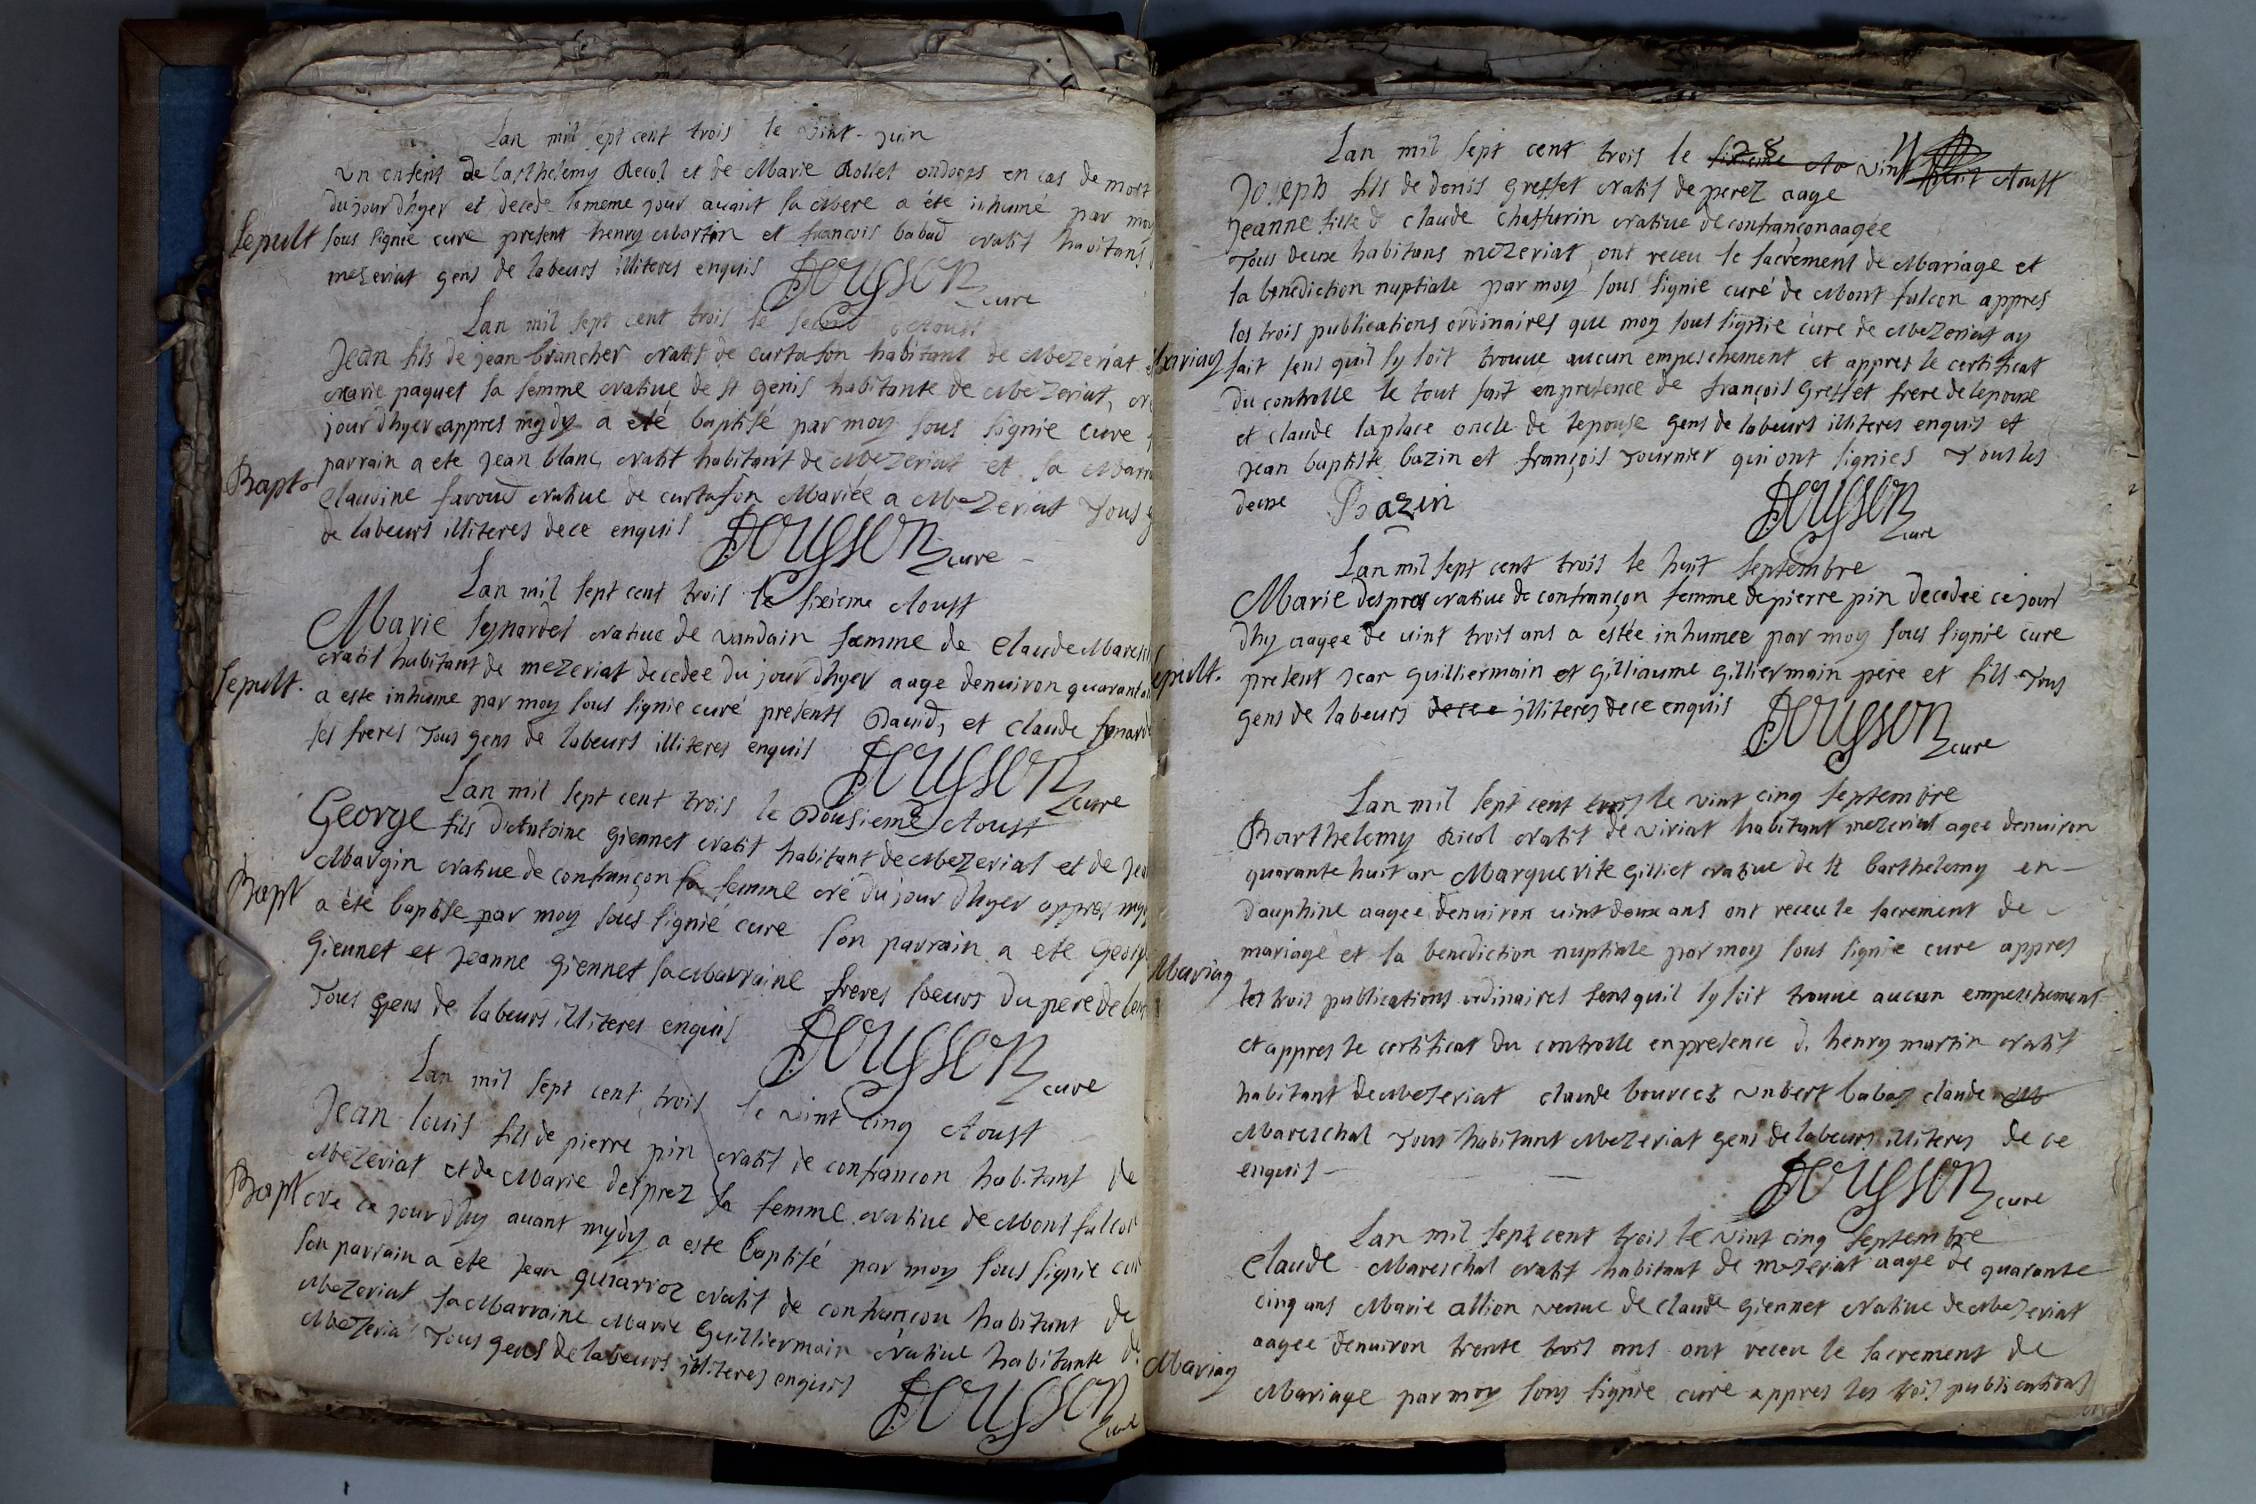 Lan mil sept cent trois le vint juin
un enfent de barthelemy Recol et de Marie Rollet ondoyes en cas de mort
du jour dhyer et decede le meme jour auant sa Mere a été inhumé par moy
Sepult sous signie cure present henry Martin et francois babad natif habitans
mezeriat gens de labeurs illiteres enquis Pousson cure
Lan mil sept cent trois le second Aoust
Jean fils de jean brancher natif de curtafon habitant de Mezeriat et
Marie paquet sa femme natiue de st genis habitante de Mezeriat, ne
jour dhyer appres mydy a eté baptisé par moy sous signie cure
Bapt parrain a ete jean blanc natif habitant de Mezeriat et sa Marr
Claudine favoud natiue de curtafon Mariée a Mezeriat Tous g
de labeurs illiteres dece enquis Pousson cure
Lan mil sept cent trois le sixieme Aoust
Marie natiue de vandain femme de Claude Mares
natif habitant de mezeriat decedee du jour dhyer aage denuiron quarant
Sepult. a este inhume par moy sous signie curé presents Dauid, et claude
ses freres Tous gens de labeurs illiteres enquis Pousson cure
Lan mil sept cent trois le Dousieme Aoust
George fils d'Antoine Giennet natif habitant de Mezeriat et de Jea
Margin natiue de confrançon sa femme né du jour dhyer appres myd
Bapt a été baptise par moy sous signié cure son parrain a ete George
Giennet et Jeanne Giennet sa Marraine freres soeurs du pere de
Tous gens de labeurs illiteres enquis Pousson cure
Lan mil sept cent trois le vint cinq Aoust
Jean louis fils de pierre pin natif de confrancon habitant de
Mezeriat et de Marie desprez sa femme natiue de Mont falcon
Bapt ne ce jour dhuy auant mydy a este baptisé par moy sous signie cur
son parrain a ete Jean natif de confrançon habitant de
Mezeriat sa Marraine Marie Guilliermain natiue habitante de
Mezeriat Tous gens de labeurs illiteres enquis Pousson cure
Lan mil sept cent trois le 28 vint huit Aoust
Joseph fils de denis greffet natif de perez aage
Jeanne fille d claude chaffurin natiue de confrançon aagée
Tous deux habitans mezeriat, ont receu le sacrement de Mariage et
la benediction nuptiale par moy sous signie curé de Mont falcon appres
les trois publications ordinaires que moy sous signie cure de Mezeriat ay
Mariag fait sens quil sy soit trouue aucun empeschement et appres le certificat
du controlle le tout fait en presence de françois Greffet frere de lepoux
et claude laplace oncle de lepouse gens de labeurs illiteres enquis et
Jean baptiste bazin et françois Tournier qui ont signies Tous les
deux Bazin Pousson cure
Lan mil sept cent trois le huit Septembre
Marie despres natiue de confrançon femme de pierre pin decedée ce jour
dhy aagee de vint trois ans a estée inhumee par moy sous signie cure
Sepult. present Jean guilliermain et gilliaume gilliermain pere et fils Tous
gens de labeurs dece illiteres dece enquis Pousson cure
Lan mil sept cent trois le vint cinq Septembre
Barthelemy Ricol natif de viriat habitant mezeriat agee denuiron
quarante huit an Marguerite Gilliet natiue de st barthelemy en
dauphine aagee denuiron vint deux ans ont receu le sacrement de
mariage et la benediction nuptiale par moy sous signie cure appres
Mariag les trois publications ordinaires sens quil sy soit trouue aucun empeschement
et appres le certificat du controlle en presence d. henry martin natif
habitant de Mezeriat claude bourcet unbert babad claude M
Mareschal Tous habitant Mezeriat gens de labeurs illiteres de ce
enquis Pousson cure
Lan mil sept cent trois le vint cinq Septembre
Claude Mareschal natif habitant de mezeriat aage de quarante
cinq ans Marie Allion veuue de claude Giennet natiue de Mezeriat
aagee denuiron trente trois ans ont receu le sacrement de
Mariag Mariage par moy sous signie cure appres les trois publications